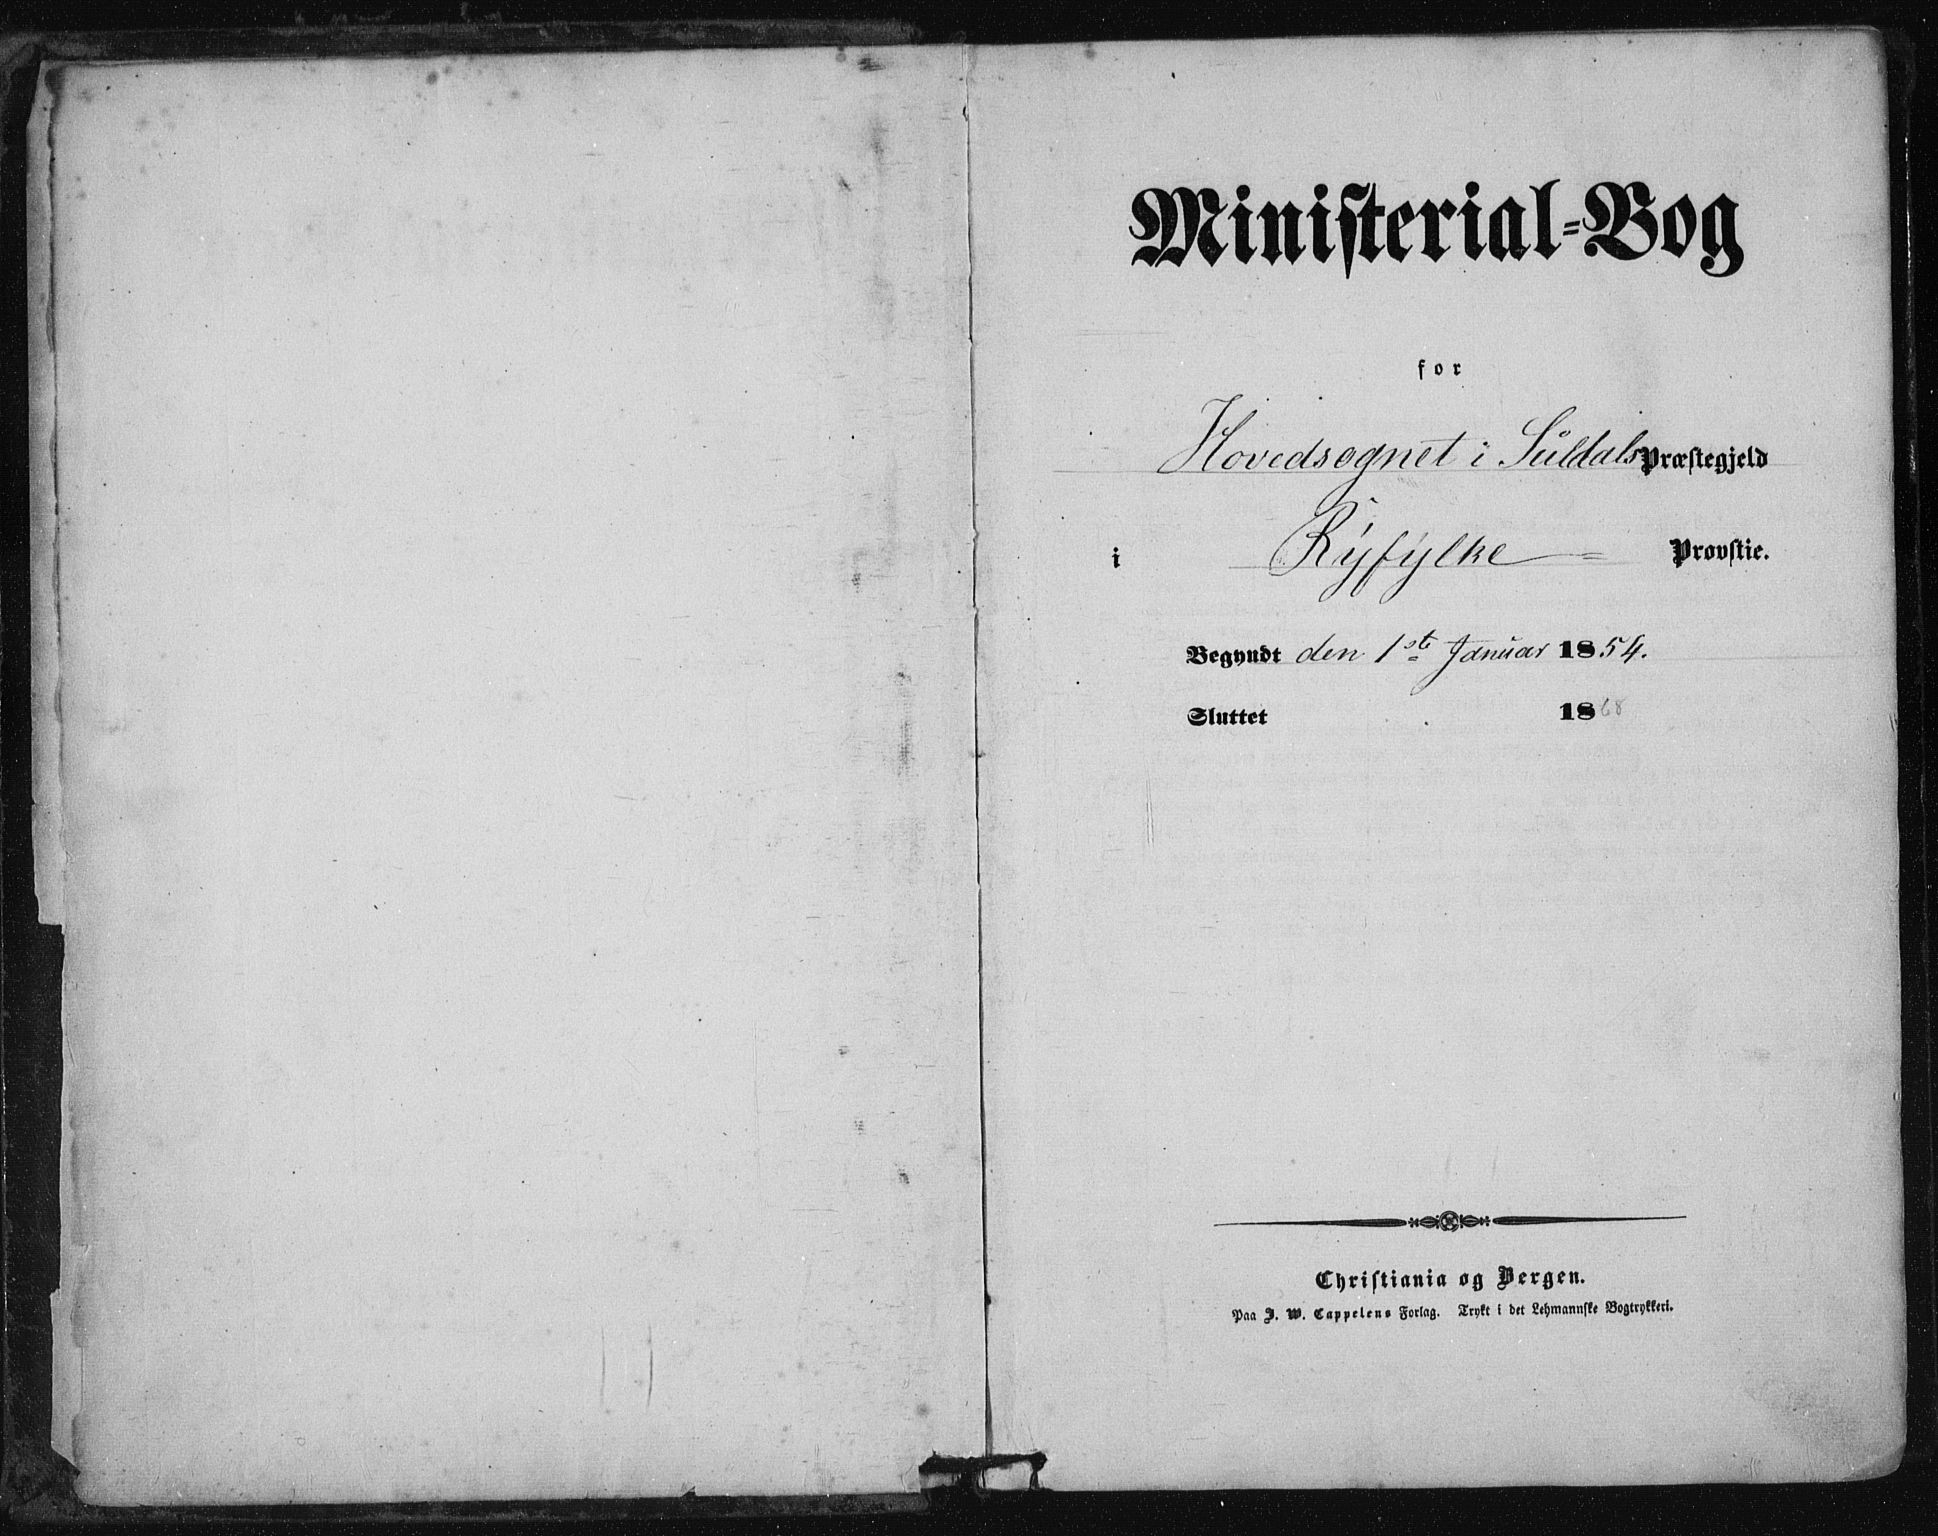 Ministerial-Bog
for
Hovedsognet i Suldals Præstegjeld
i Ryfylke Provstie.
Begyndt den 1ste Januar 1854.
Sluttet 1868
Christiania og Bergen.
Paa J. W. Cappelens Forlag. Trykt i det Lehmannske Bogtrykkeri.